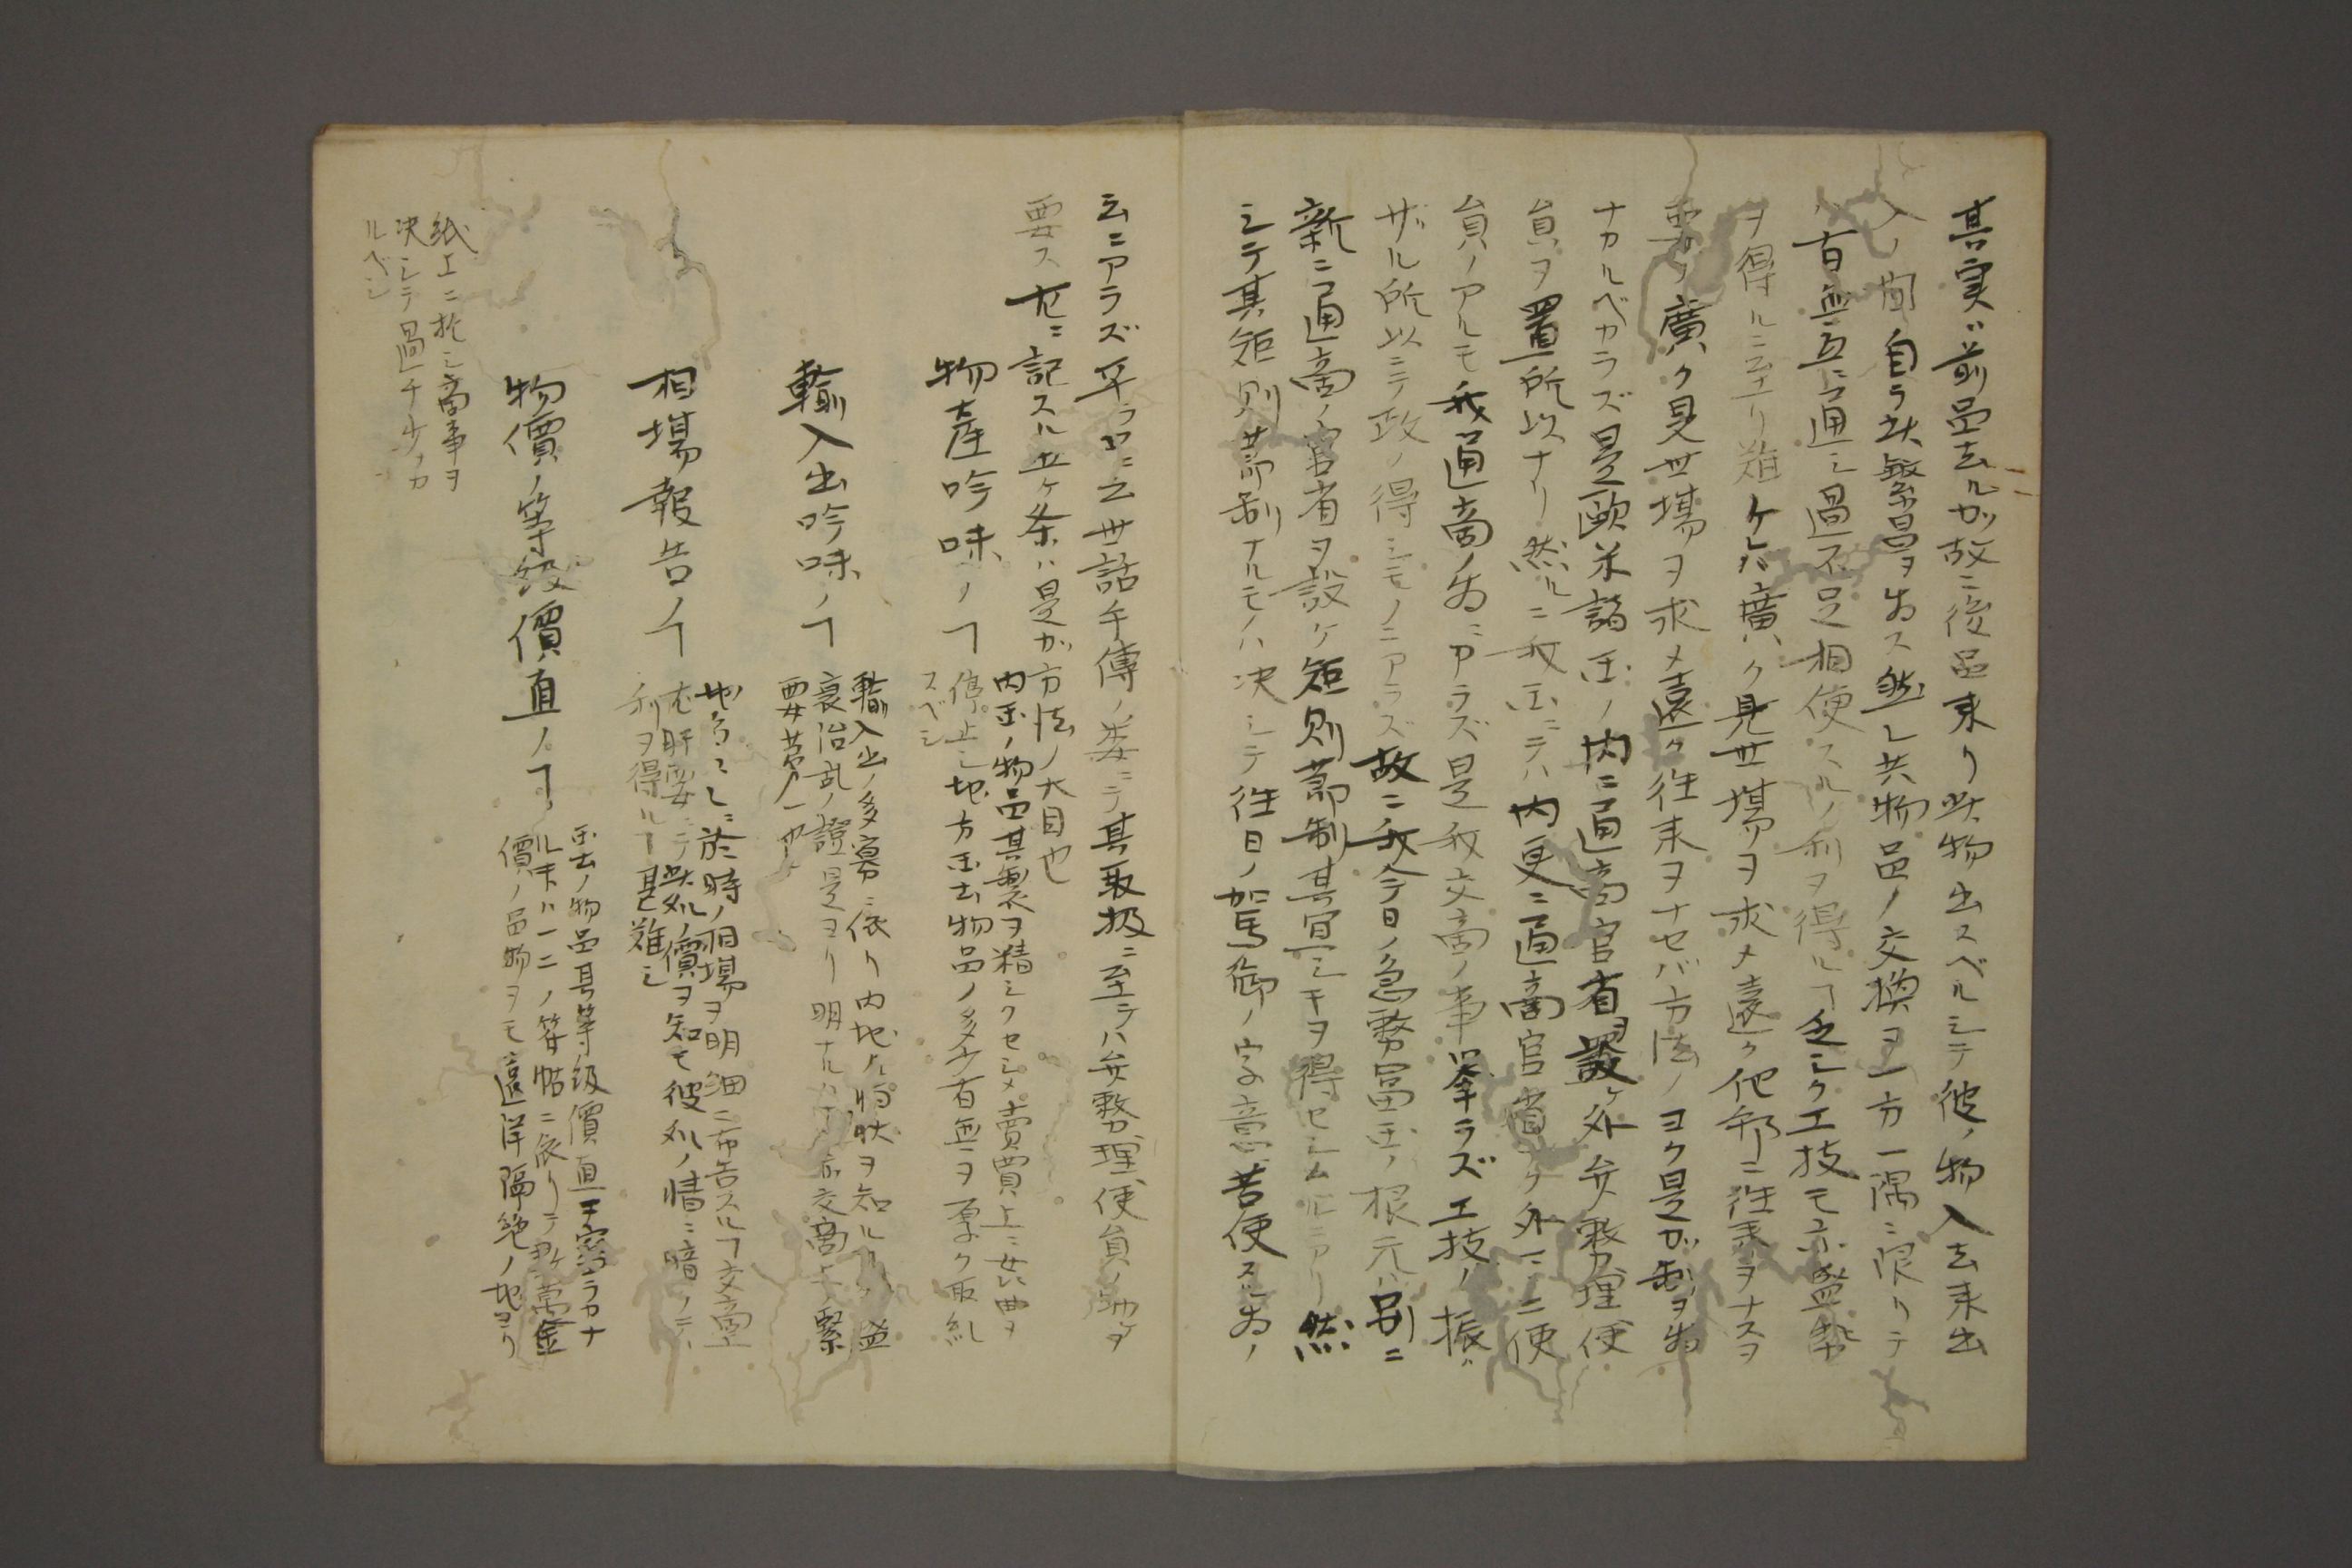 其実ハ前品去ルガ故ニ後品来リ此物出スベルシテ彼ノ物入去来出
入ノ間自ラ大繁昌ヲ為ス然レ共物品ノ交換ヲ一方一隅ニ限リテ
ハ有無互ニ通シ過不足相便スルノ利ヲ得ルヿ乏シク工技モ亦盛挙
ヲ得ルニ至リ難ケレバ廣ク見世場ヲ求メ遠ク他邦ニ往来ヲナスヲ
要ス廣ク見世場ヲ求メ遠ク往来ヲナセバ方法ノヨク是ガ制ヲ為
ナカルベカラズ是歐米諸国ノ内ニ通商官省ヲ設ケ外弁務理使
員ヲ置所以ナリ然ルニ我国ニテハ内更ニ通商官省ナク外一二便
員ノアルモ我通商ノ為ニアラズ是我交商ノ事挙ラズ工技ノ振ハ
ザル所以ニテ政ノ得シモノニアラズ故ニ我今日ノ急務富国ノ根元ハ別ニ
新ニ通商ノ官省ヲ設ケ矩則節制其宜シキヲ得セシムルニアリ然
シテ其矩則節制ナルモノハ决シテ往日ノ駕御ノ字意苦使スル為ノ
云ニアラズ平ラニ云世話手傳ノ委ニテ其取扱ニ至テハ弁務理使員ノ助ケヲ
要ス左ニ記スル五ケ条ハ是ガ方法ノ大目也
物産吟味ノヿ
内国ノ物品其製ヲ精シクセシメ賣買上ニ姦曲ヲ
停止シ地方国土物品ノ多少有無ヲ厚ク取糺
スベシ
輸入出吟味ノヿ
輸入出ノ多寡ニ依リ内地ノ情状ヲ知ル 盛
衰治乱ノ證是ヨリ明ナルハナシ亦交商上ノ緊
要第一也
相場報告ノヿ
地方々々ニ於時ノ相場ヲ明細ニ布告スルヿ交商上
尤肝要ニテ此処ノ價ヲ知モ彼処ノ情ニ暗ノテハ
利ヲ得ルヿ甚難シ
物價ノ等級價直ノヿ
国土ノ物品其等級價直正密ラカナ
ル末ハ一二ノ算帖ニ依リテ数萬金
價ノ品物ヲモ遠洋隔絶ノ地ヨリ
紙上ニ於シ商事ヲ
决シテ過チ少ナカ
ルベシ